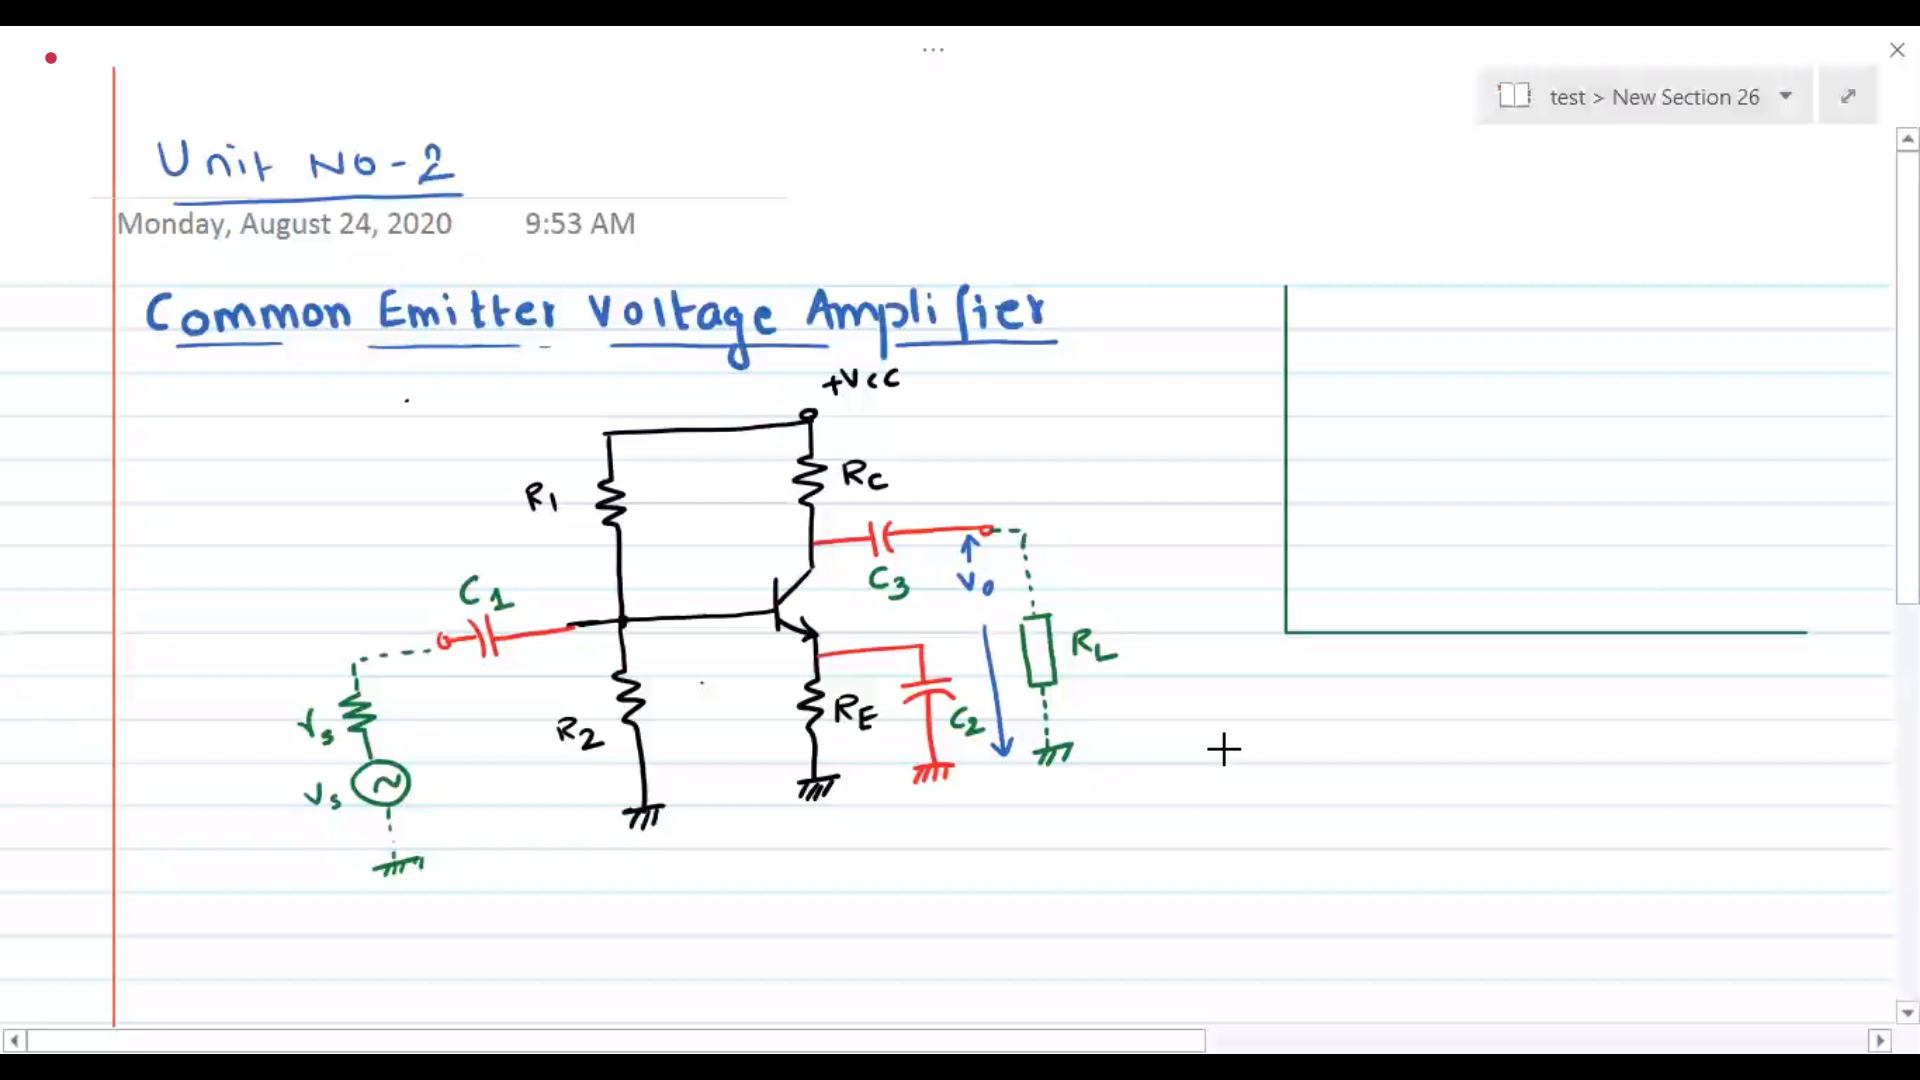 ...
test > New Section 26
Unit No-2
Monday, August 24, 2020 9:53 AM
Common Emitter Voltage Amplifier
+Vcc
R1
RC
C1
C3
Vo
RL
rs
R2
RE
C2
Vs